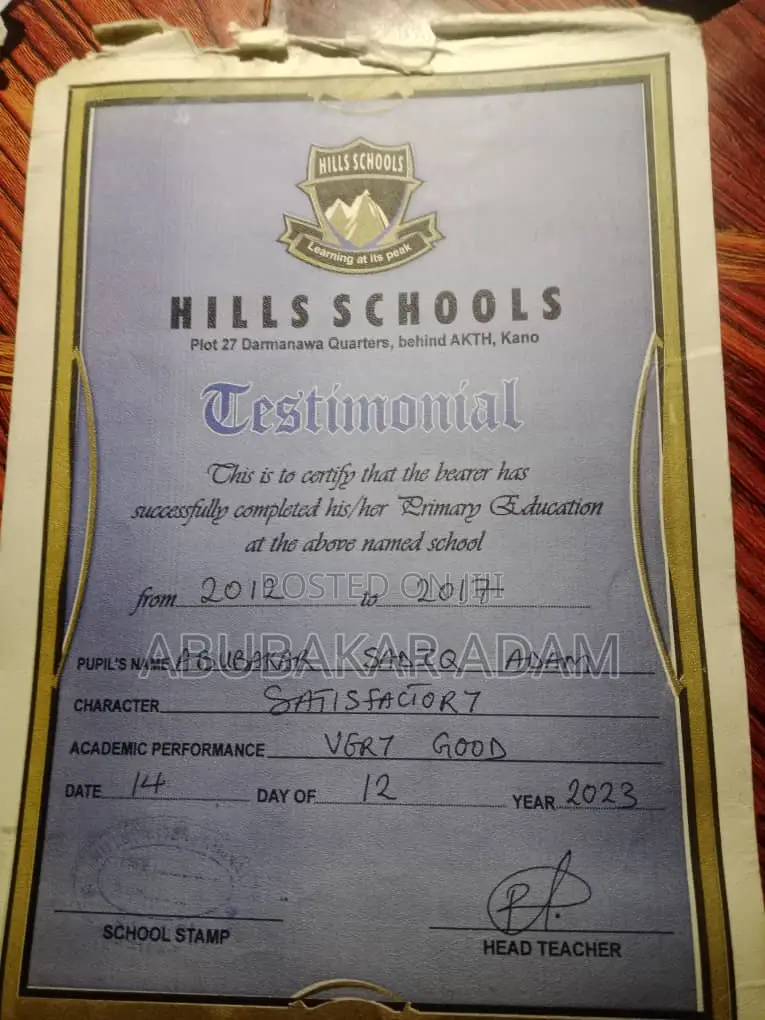 HILLS SCHOOLS
Learning at its peak
HILLS SCHOOLS
Plot 27 Darmanawa Quarters, behind AKTH, Kano
Testimonial
This is to certify that the bearer has
successfully completed his/her Primary Education
at the above named school
from 2012 to 2017
POSTED ON JIJI
ABUBAKAR ADAM
PUPIL'S NAME ABUBAKAR SADIQ ADAM
CHARACTER SATISFACTORY
ACADEMIC PERFORMANCE VERY GOOD
DATE 14 DAY OF 12 YEAR 2023
SCHOOL STAMP
HEAD TEACHER